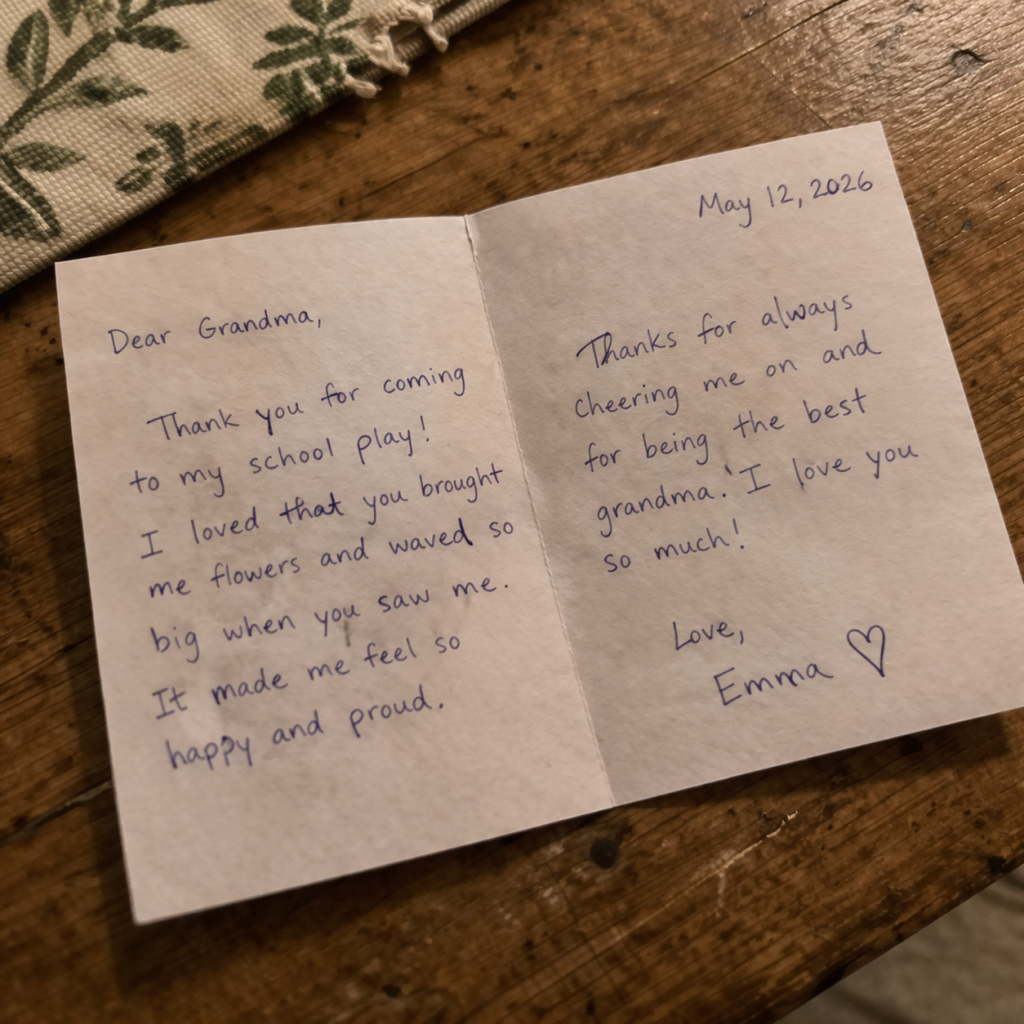 Dear Grandma,
Thank you for coming
to my school play!
I loved that you brought
me flowers and waved so
big when you saw me.
It made me feel so
happy and proud.
May 12, 2026
Thanks for always
cheering me on and
for being the best
grandma. I love you
so much!
Love,
Emma ♡